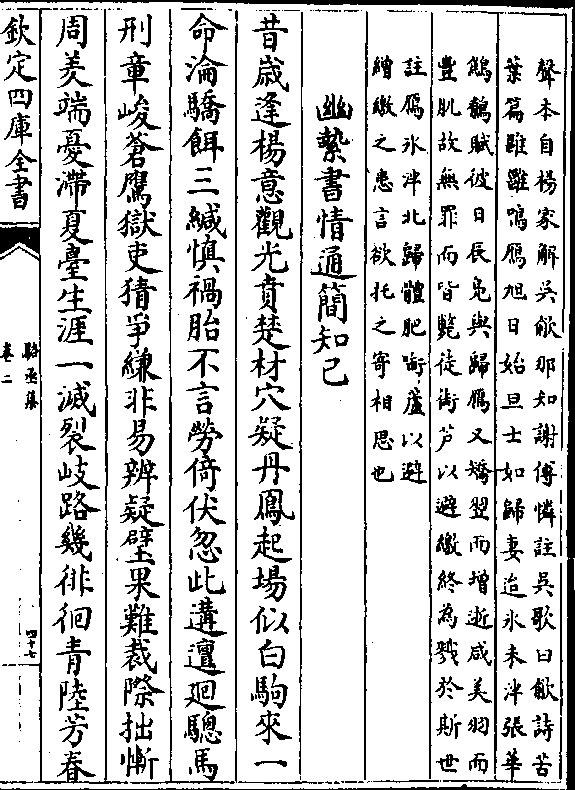 聲本自楊家解吳歈那知謝傅憐註吳歌曰歈詩苦
葉篇雝雝鳴鴈旭日始旦士如歸妻迨氷未泮張華
鷦鷯賦彼日晨鳬與歸鴈又矯翌而增逝咸美羽而
豐肌故無罪而皆斃徒銜芦以避繳終為戮於斯世
註鴈氷泮北歸體肥啣蘆以避
繒繳之患言欲托之寄相思也
幽縶書情通簡知己
昔歳逢楊意觀光賁楚材穴疑丹鳳起塲似白駒來一
命淪驕餌三緘慎禍胎不言勞倚伏忽此遘邅廻驄馬
刑章峻蒼鷹獄吏猜爭縑非易辨疑璧果難裁際拙慚
周羑端憂滯夏臺生涯一滅裂岐路幾徘徊青陸芳春
欽定四庫全書
駱丞集
卷二
四十七